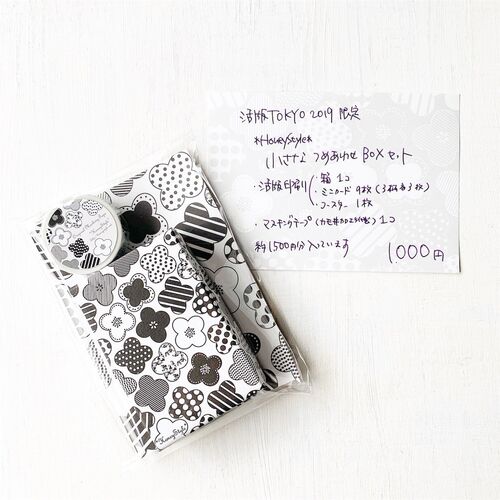 活版TOKYO 2019 限定
*HoneyStyle*
小さな つめあわせ BOXセット
・活版印刷 ・箱 1コ
・ミニカード 9枚 (3柄各3枚)
・コースター 1枚
・マスキングテープ (カモ井加工紙製) 1コ
約1500円分入っています
1000円
HoneyStyle